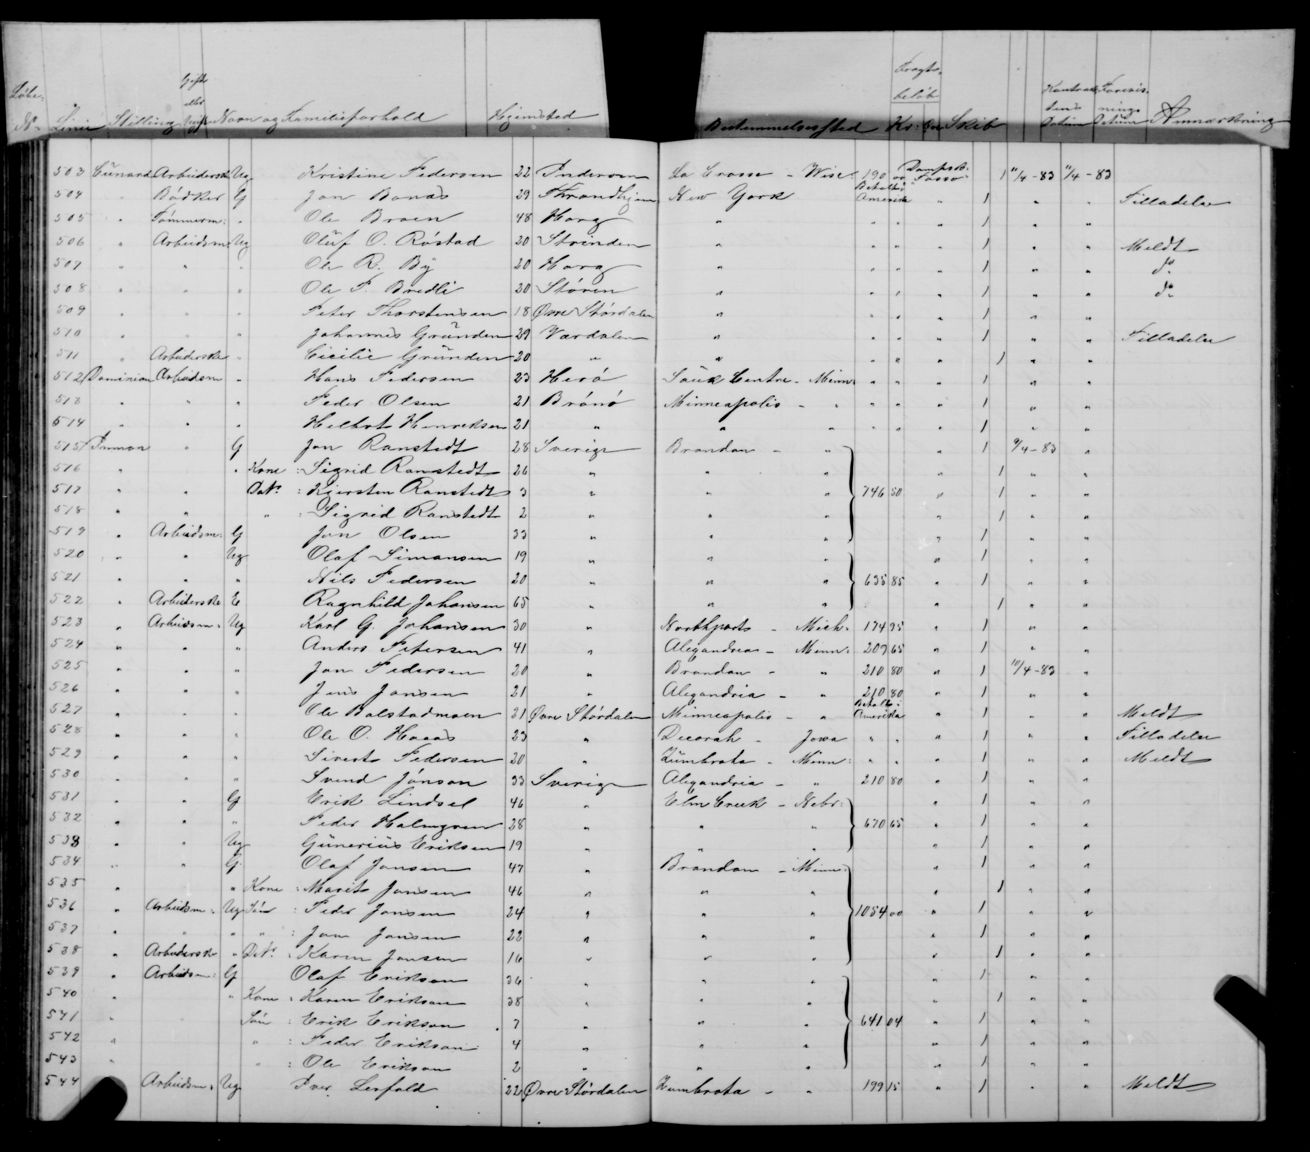 Løbe- Gift eller Ugift Fragts-beløb Kontraktens Datum Forevisnings Datum
No Linie Stilling Navn og Familieforhold Hjemsted Bestemmelsessted Kr: Øre Skib Anmærkning
503 Cunard Arbeiderske Ug Kristine Pedersen 22 Inderøen La Crosse - Wisc. 190 00 Dampsb. Tasso 1 11/4-83 11/4-83
504 " Bødker G Jon Bonæs 29 Throndhjem New York Betalt i Amerika " 1 " " Tilladelse
505 " Tømmerm: " Ole Broen 48 Horg " " " " 1 " "
506 " Arbeidsm: Ug Oluf O. Røstad 20 Strinden " " " " 1 " " Meldt
507 " " " Ole R. By 20 Horg " " " " 1 " " do
508 " " " Ole P. Bredli 20 Støren " " " " 1 " " do
509 " " " Peter Thorstensen 18 Øvre Størdalen " " " " 1 " "
510 " " " Johannes Grunden 29 Værdalen " " " " 1 " " Tilladelse
511 " Arbeiderske " Cicilie Grunden 20 " " " " " 1 " "
512 Dominion Arbeidsm " Hans Pedersen 23 Herø Sauk Centre - Minn: " " " 1 " "
513 " " " Peder Olsen 21 Brønø Minneapolis - " " " " 1 " "
514 " " " Henriksen 21 " " " " " " 1 " "
515 Inman " G Jon Ranstedt 28 Sverige Brandon - " " 1 9/4-83 "
516 " " Kone : Sigrid Ranstedt 26 " " " " 1 " "
517 " Datr : Kjersten Ranstedt 3 " " " 746 50 " 1 " "
518 " " " : Sigrid Ranstedt 2 " " " " 1 " "
519 " Arbeidsm: G Jon Olsen 33 " " " " 1 " "
520 " " Ug Olaf Simonsen 19 " " " " 1 " "
521 " " " Nils Pedersen 20 " " " 635 85 " 1 " "
522 " Arbeiderske E Ragnhild Johansen 65 " " " " 1 " "
523 " Arbeidsm. Ug Karl G. Johansen 30 " Northport - Mich. 174 95 " 1 " "
524 " " " Anders Petersen 41 " Alexandria - Minn: 209 65 " 1 " "
525 " " " Jon Pedersen 20 " Brandon - " 210 80 " 1 10/4-83 "
526 " " " Jens Jonsen 21 " Alexandria - " 210 80 " 1 " "
527 " " " Ole Bolstadmoen 31 Øvre Størdalen Minneapolis - " Betalt i Amerika " 1 " " Meldt
528 " " " Ole O. Haaås 23 " Decorah - Jowa " " " 1 " " Tilladelse
529 " " " Sivert Pedersen 20 " Zumbrota - Minn: " " " 1 " " Meldt
530 " " " Svend Jønson 33 Sverige Alexandria - " 210 80 " 1 " "
531 " " G Erik Lindsel 46 " Elm Creek - Nebr: " 1 " "
532 " " " Peder Holmgren 28 " " " 670 65 " 1 " "
533 " " Ug Gunerius Eriksen 19 " " " " 1 " "
534 " " G. Olaf Jonsen 47 " Brandon - Minn: " 1 " "
535 " " Kone : Marit Jonsen 46 " " " " 1 " "
536 " Arbeidsm. Ug Søn : Peder Jonsen 24 " " " 1054 00 " 1 " "
537 " " " " : Jon Jonsen 22 " " " " 1 " "
538 " Arbeiderske " Datr : Karen Jonsen 16 " " " " 1 " "
539 " Arbeidsm: G Olaf Erikson 36 " " " " 1 " "
540 " " Kone : Karen Erikson 38 " " " " 1 " "
541 " Søn : Erik Erikson 7 " " " 641 04 " 1 " "
542 " " : Peder Erikson 4 " " " " 1 " "
543 " " : Ole Erikson 2 " " " " 1 " "
544 Arbeidsm. Ug Iver Leifald 22 Øvre Størdalen Zumbrota - " 199 15 " 1 " " Meldt